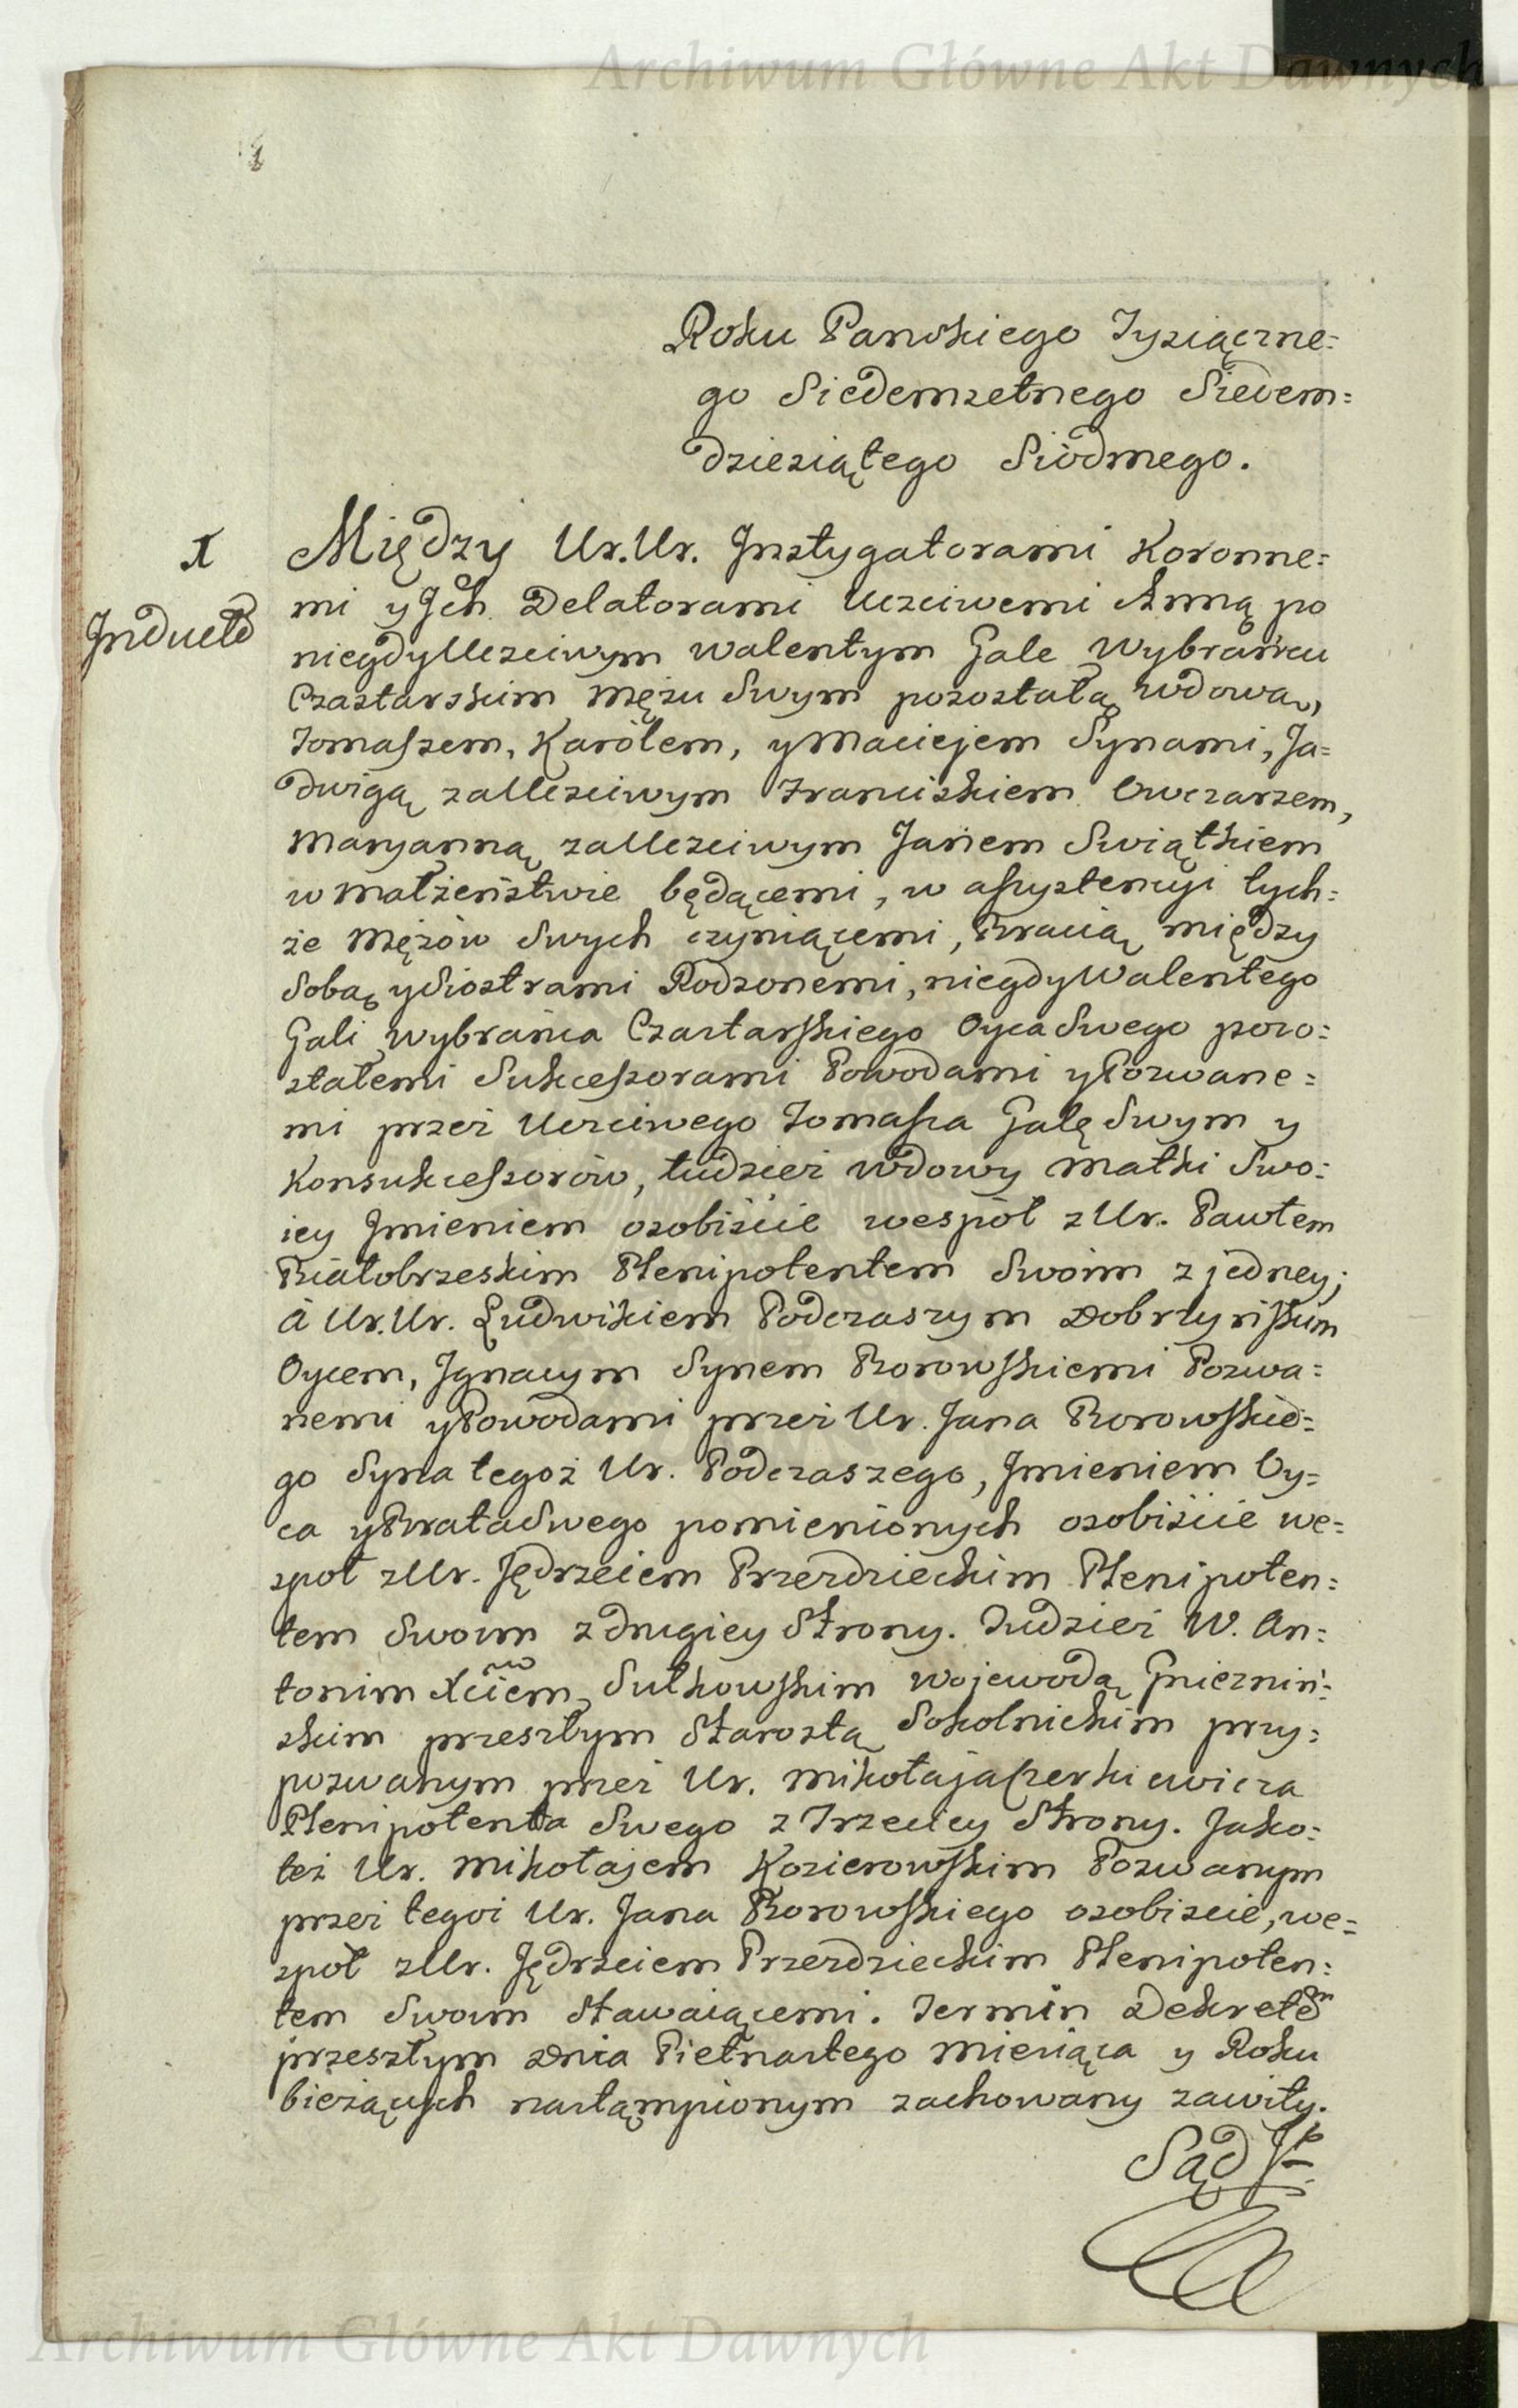 Archiwum Główne Akt Dawnych
1
Roku Panskiego Tysiączne=
go Siedemsetnego Siedem=
dziesiątego Siódmego.
1
Między Ur. Ur. Instygatorami Koronne=
Inductd
mi y Jch Delatorami Uczciwemi Anną po
niegdy Uczciwym Walentym Gale Wybrańcu
Czastarskim Mężu Swym pozostałą Wdową,
Tomaszem, Karólem, y Maciejem Synami, Ja=
dwigą za Uczciwym Franciszkiem Owczarzem,
Maryanną za Uczciwym Janem Swiątkiem
w Małżeństwie będącemi, w assystencyi tych=
że Mężów Swych czyniącemi, Bracią między
Sobą y Siostrami Rodzonemi, niegdy Walentego
Gali Wybrańca Czastarskiego Oyca Swego pozo=
stałemi Sukcessorami Powodami y Pozwane=
mi przez Uczciwego Tomasza Galę Swym y
Konsukcessorów, tudzież Wdowy Matki Swo=
iey Jmieniem osobiście wespół z Ur. Pawłem
Białobrzeskim Plenipotentem Swoim z jedney;
à Ur. Ur. Ludwikiem Podczaszym Dobrzyńskim
Oycem, Jgnacym Synem Borowskiemi Pozwa=
nemi y Powodami przez Ur. Jana Borowskie=
go Syna tegoż Ur. Podczaszego, Jmieniem Oy=
ca y Brata Swego pomienionych osobiście we=
społ z Ur. Jędrzeiem Przerdzieckim Plenipoten=
tem Swoim z drugiey Strony. Tudzież W. An=
tonim Xciem Sułkowskim Wojewodą Gnieznin=
skim przeszłym Starostą Sokolnickim przy=
pozwanym przez Ur. Mikołaja Szerkiewicza
Plenipotenta Swego z Trzeciey Strony. Jako=
też Ur. Mikołajem Kozierowskim Pozwanym
przez tegoż Ur. Jana Borowskiego osobiscie, we=
spół z Ur. Jędrzeiem Przerdzieckim Plenipoten=
tem Swoim Stawaiącemi. Termin Dekretem
przeszłym Dnia Pietnastego Miesiąca y Roku
bieżących nastąmpionym zachowany zawity.
Sąd
Archiwum Główne Akt Dawnych